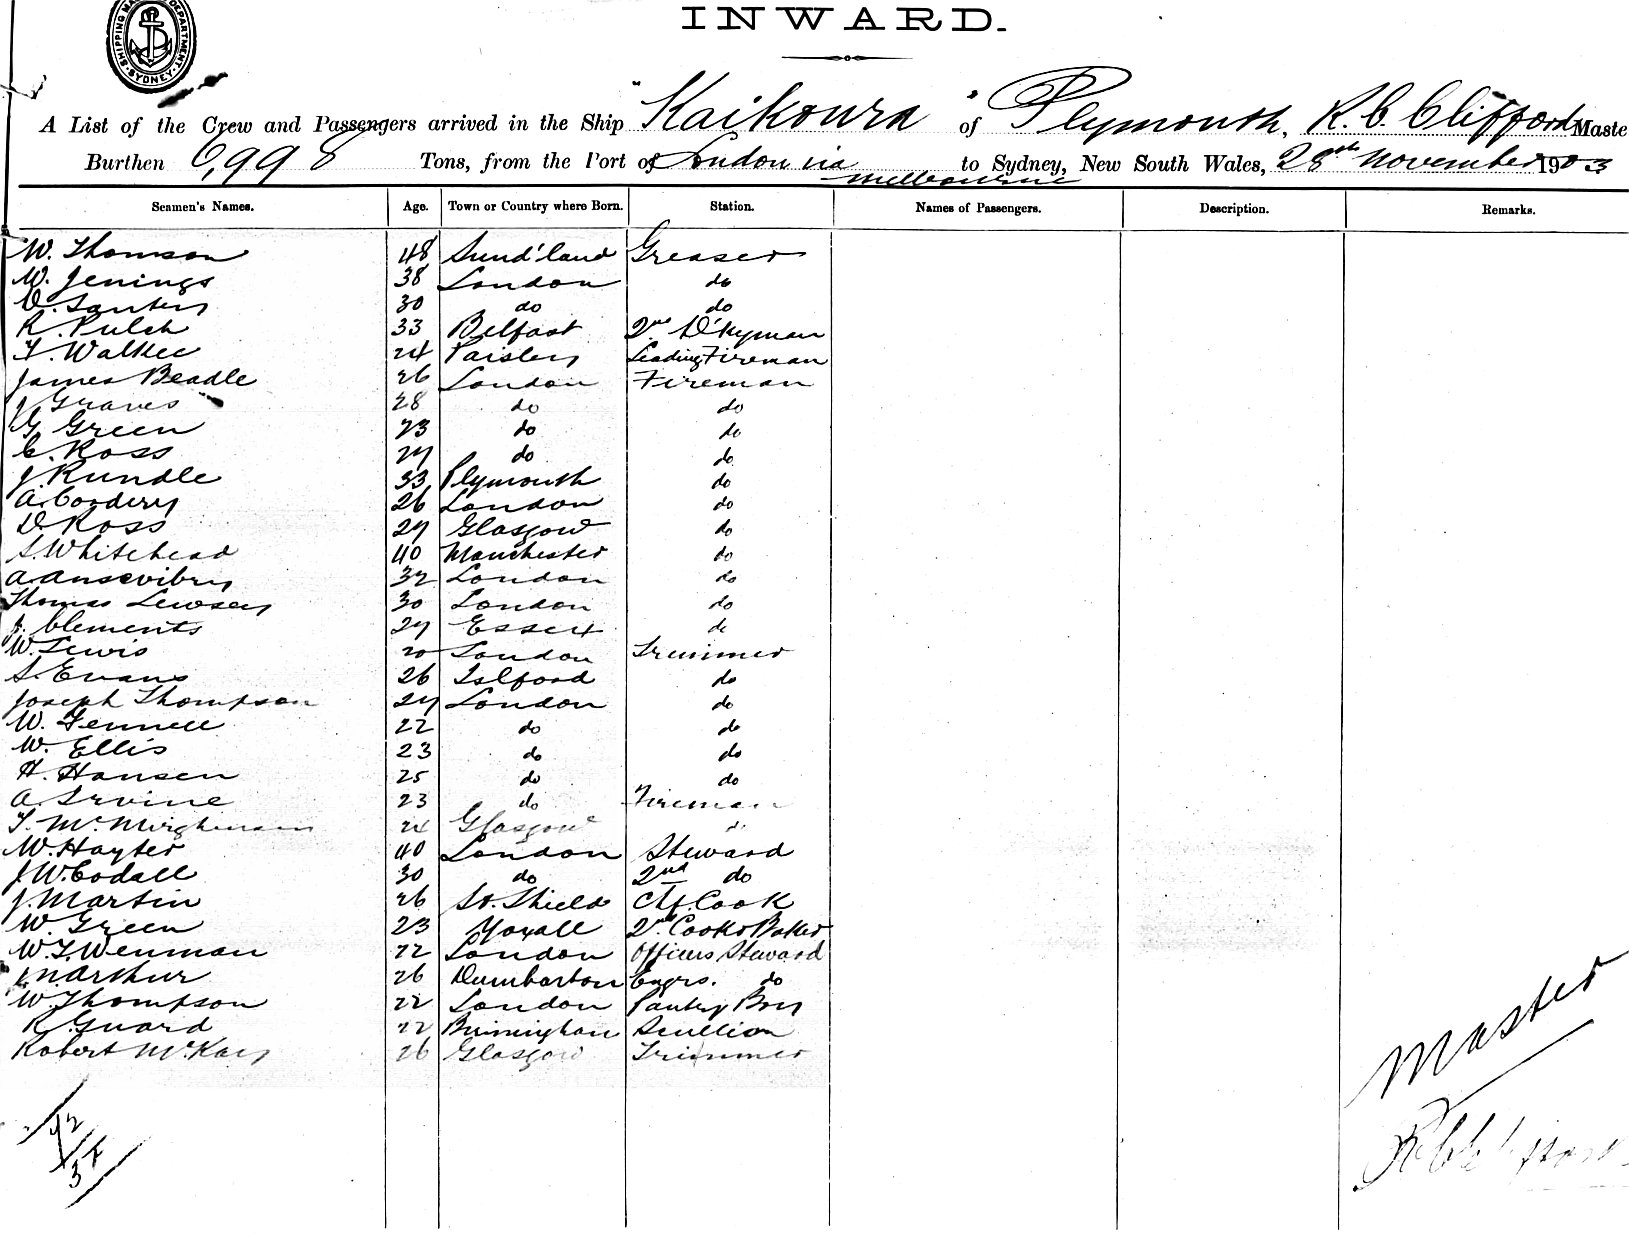 SHIPPING MA DEPARTMENT SYDNEY
INWARD.
A List of the Crew and Passengers arrived in the Ship "Kaikoura" of Plymouth, R. C. Clifford Maste
Burthen 6,998 Tons, from the Port of London via Melbourne to Sydney, New South Wales, 28th November 1903
Seamen's Names. Age. Town or Country where Born. Station. Names of Passengers. Description. Remarks.
W. Thomson 48 Sund'land Greaser
W. Jenings 38 London do
30 do do
R. Pulch 33 Belfast 2nd D'kyman
T. Walker 24 Paisley Leading Fireman
James Beadle 26 London Fireman
J Graves 28 do do
G. Green 23 do do
C. Ross 27 do do
J Rundle 33 Plymouth do
A. Cordery 26 London do
D Ross 27 Glasgow do
S. Whitehead 40 Manchester do
A. 32 London do
Thomas Lewsey 30 London do
J. Clements 27 Essex do
W. Lewis 20 London Trimmer
S. Evans 26 Islford do
Joseph Thompson 27 London do
W. Fennell 22 do do
W. Ellis 23 do do
H. Hansen 25 do do
A. Irvine 23 do Fireman
T. 24 Glasgow do
W. Hayter 40 London Steward
J. W. Codall 30 do 2nd do
J. Martin 26 So. Shield Chf. Cook
W. Green 23 Yoxall 2nd Cook & Baker
W. T. Wenman 22 London Officers Steward
J. McArthur 26 Dumbarton Engrs. do
W. Thompson 22 London Pantry Boy
R. Guard 22 Birmingham Scullion
Robert McKay 26 Glasgow Trimmer
Master